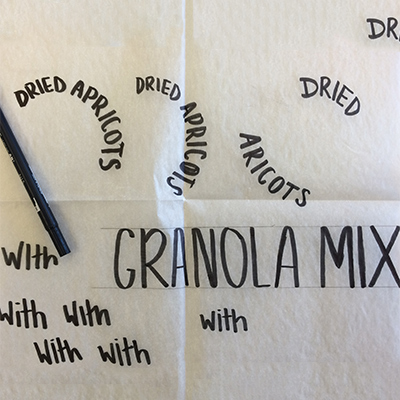 DR
DRIED APRICOTS
DRIED APRICOTS
DRIED
ARICOTS
WIth
GRANOLA MIX
With With
With
With with